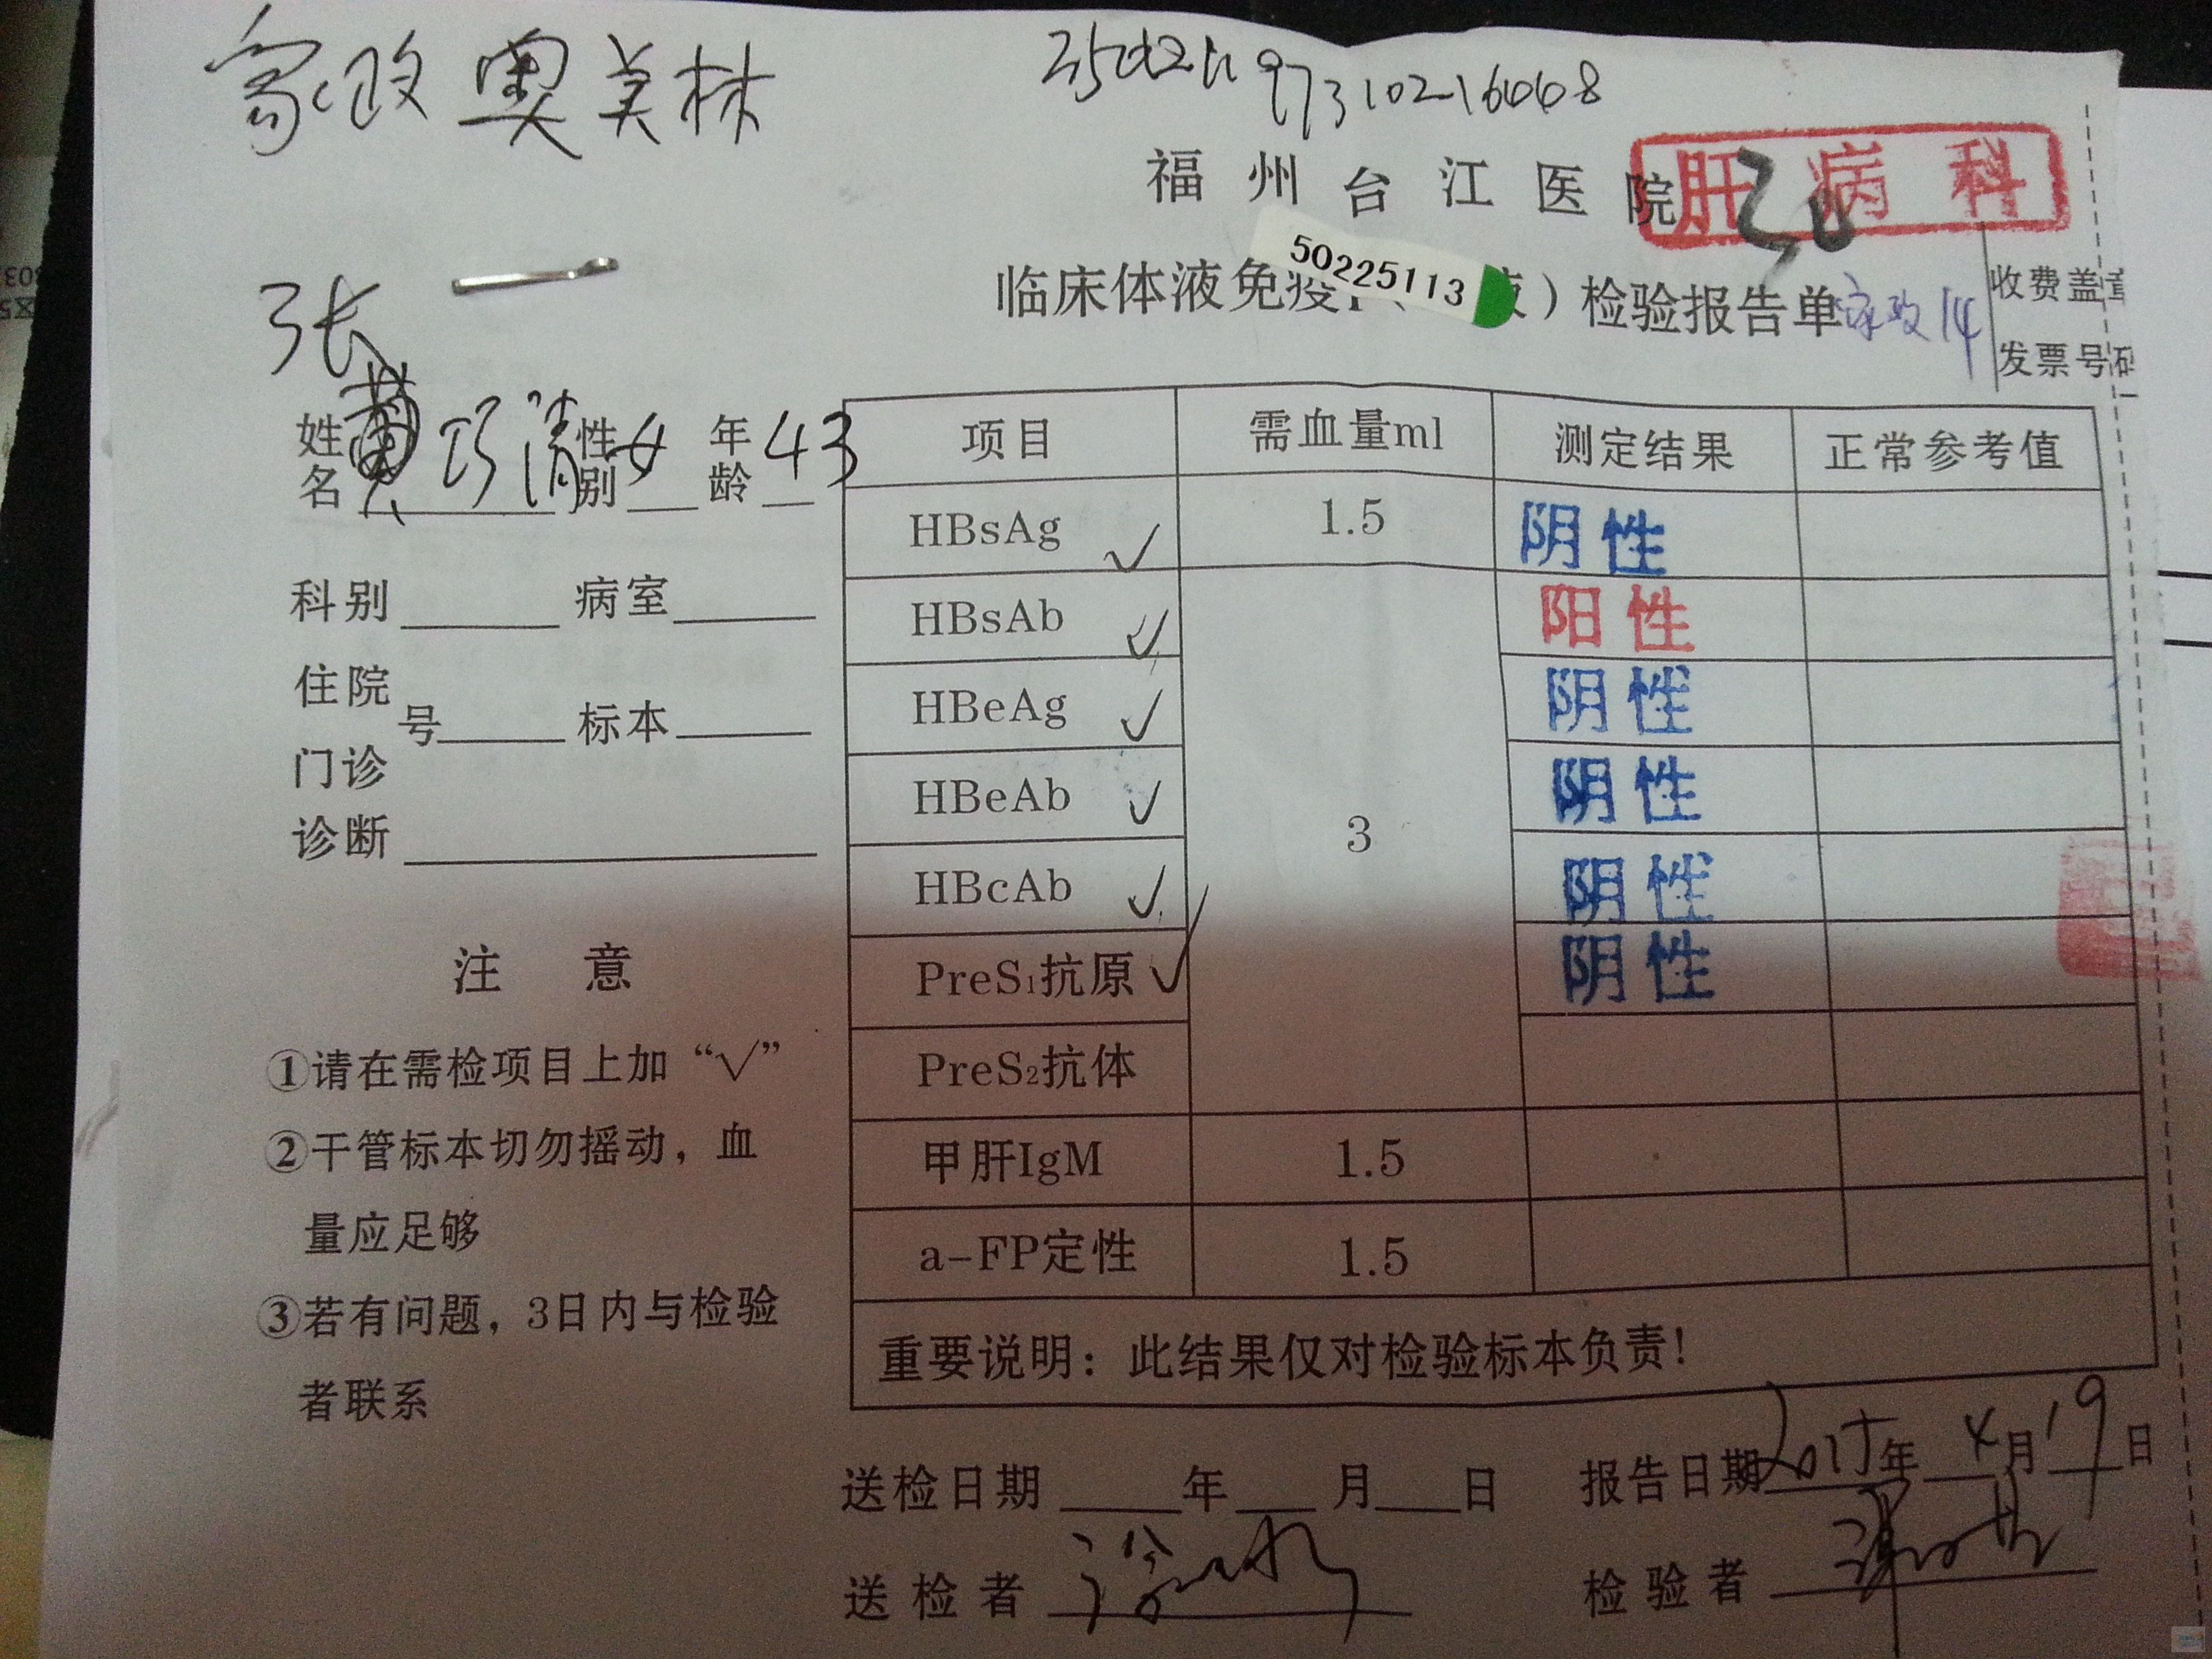 家政 奥美林
福州台江医院
肝病科
50225113
临床体液免疫 ）检验报告单
家政14
收费盖章
发票号码
张
姓名 巧清 性别 女 年龄 43
科别 病室
住院
号 标本
门诊
诊断
注 意
①请在需检项目上加“√”
②干管标本切勿摇动，血
量应足够
③若有问题，3日内与检验
者联系
项目 需血量ml 测定结果 正常参考值
HBsAg √ 1.5 阴性
HBsAb √ 阳性
HBeAg √ 阴性
HBeAb √ 3 阴性
HBcAb √ 阴性
PreS₁抗原 √ 阴性
PreS₂抗体
甲肝IgM 1.5
a-FP定性 1.5
重要说明：此结果仅对检验标本负责！
送检日期 年 月 日 报告日期 2015年 4月 19日
送检者 检验者